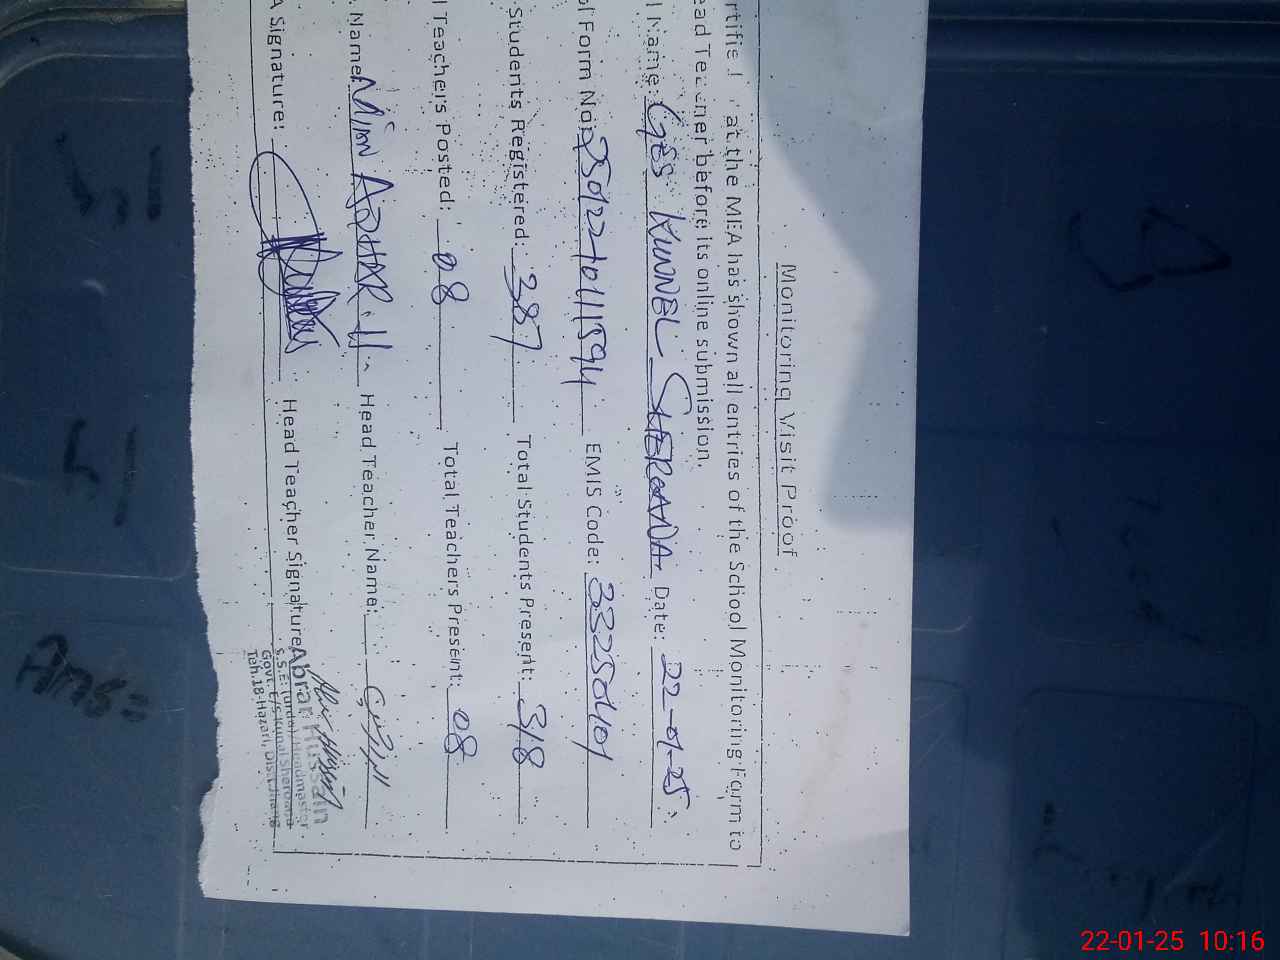 Monitoring Visit Proof
rtified at the MEA has shown all entries of the School Monitoring Form to
ead Teacher before its online submission.
l Name: GES KUNNEL SHEROANA Date: 22-01-25
ol Form No: 250122101111594 EMIS Code: 33250401
Students Registered: 387 Total Students Present: 318
l Teachers Posted: 08 Total Teachers Present: 08
Name: Mian AZHAR. U Head Teacher Name: ابرار حسین
A Signature: Head Teacher Signature:
Abrar Hussain
S.S.E: (urdu)/Headmaster
Govt. E/S Kunal Sheroana
Teh.18-Hazari, Distt. Jhang
22-01-25 10:16